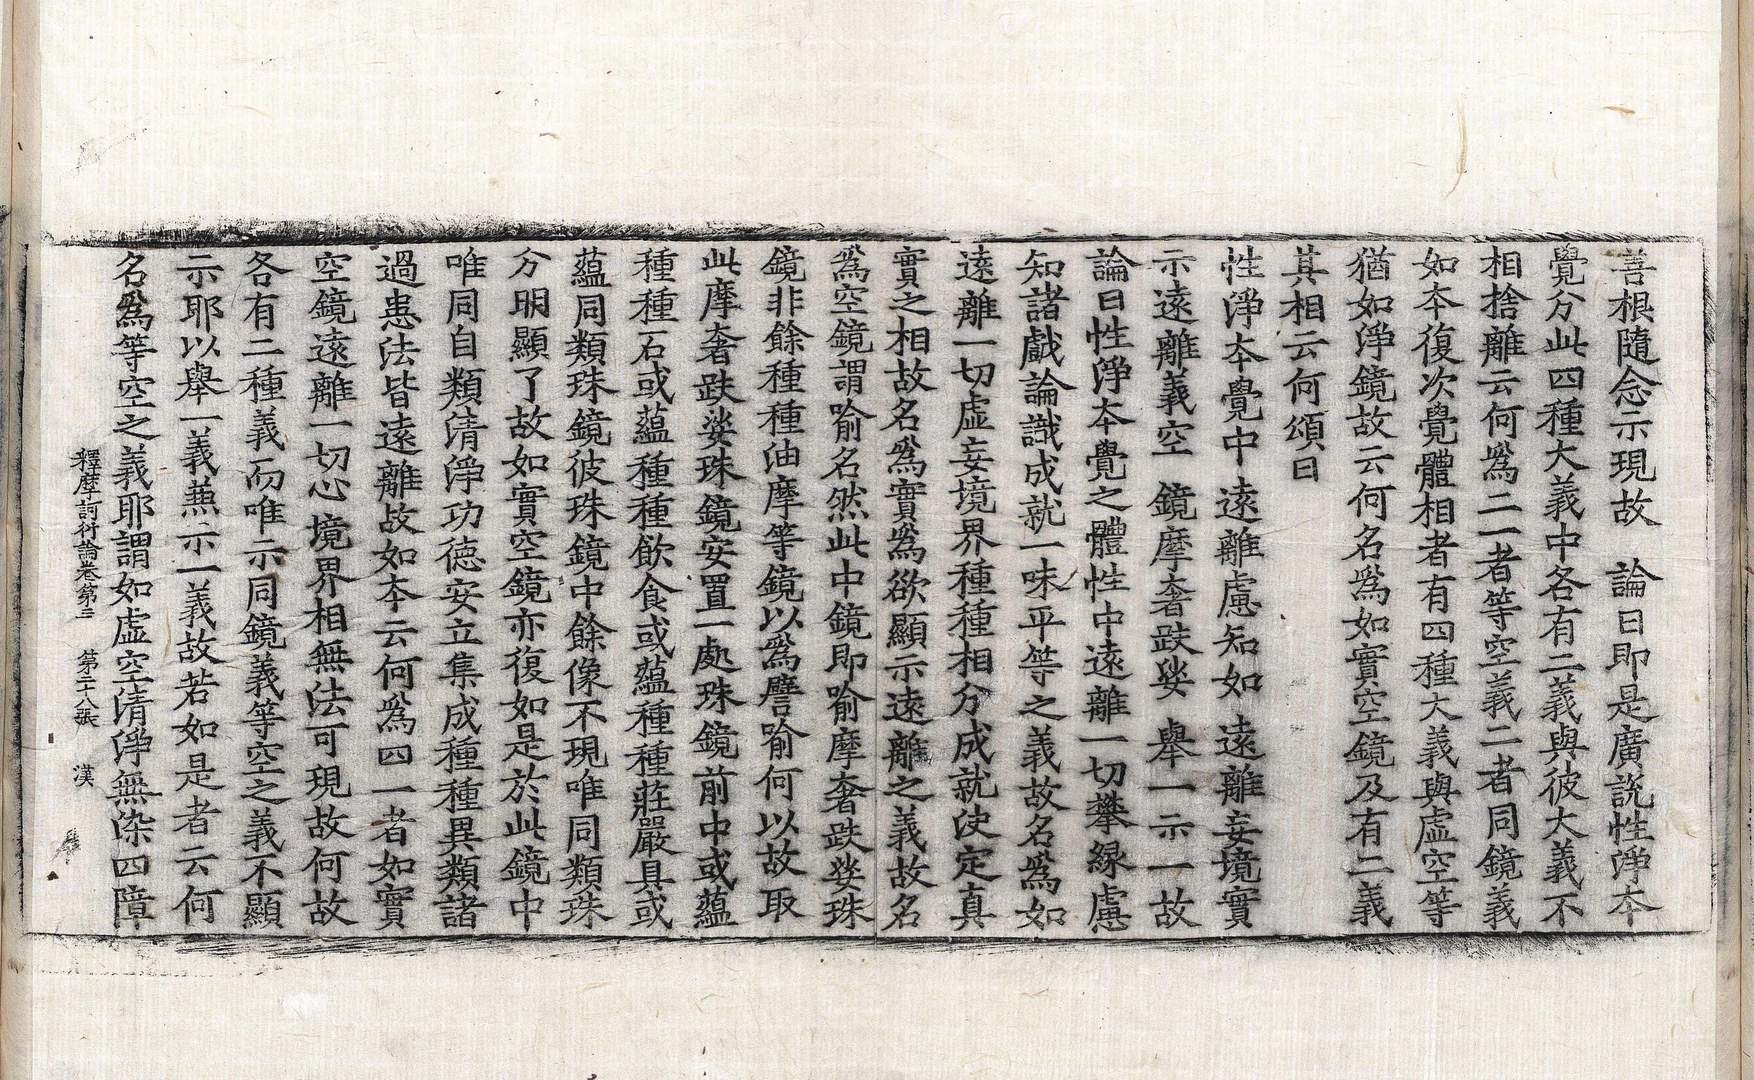 善根隨念示現故　論曰即是廣說性淨本
覺分此四種大義中各有二義與彼大義不
相捨離云何爲二一者等空義二者同鏡義
如本復次覺體相者有四種大義與虛空等
猶如淨鏡故云何名爲如實空鏡及有二義
其相云何頌曰
性淨本覺中　遠離慮知如　遠離妄境實
示遠離義空　鏡摩奢趺娑　舉一示一故
論曰性淨本覺之體性中遠離一切攀緣慮
知諸戲論識成就一味平等之義故名爲如
遠離一切虛妄境界種種相分成就決定真
實之相故名爲實爲欲顯示遠離之義故名
爲空鏡謂喻名然此中鏡即喻摩奢趺娑珠
鏡非餘種種油摩等鏡以爲譬喻何以故取
此摩奢趺娑珠鏡安置一處珠鏡前中或蘊
種種石或蘊種種飲食或蘊種種莊嚴具或
蘊同類珠鏡彼珠鏡中餘像不現唯同類珠
分明顯了故如實空鏡亦復如是於此鏡中
唯同自類清淨功德安立集成種種異類諸
過患法皆遠離故如本云何爲四一者如實
空鏡遠離一切心境界相無法可現故何故
各有二種義而唯示同鏡義等空之義不顯
示耶以舉一義兼示一義故若如是者云何
名爲等空之義耶謂如虛空清淨無染四障
釋摩訶衍論卷第三　第二十八張　漢